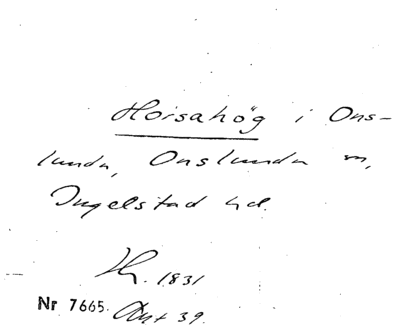 Horsahög i Ons-
lunda, Onslunda sn,
Ingelstad hd.
1831
Nr 7665. Ant 39.